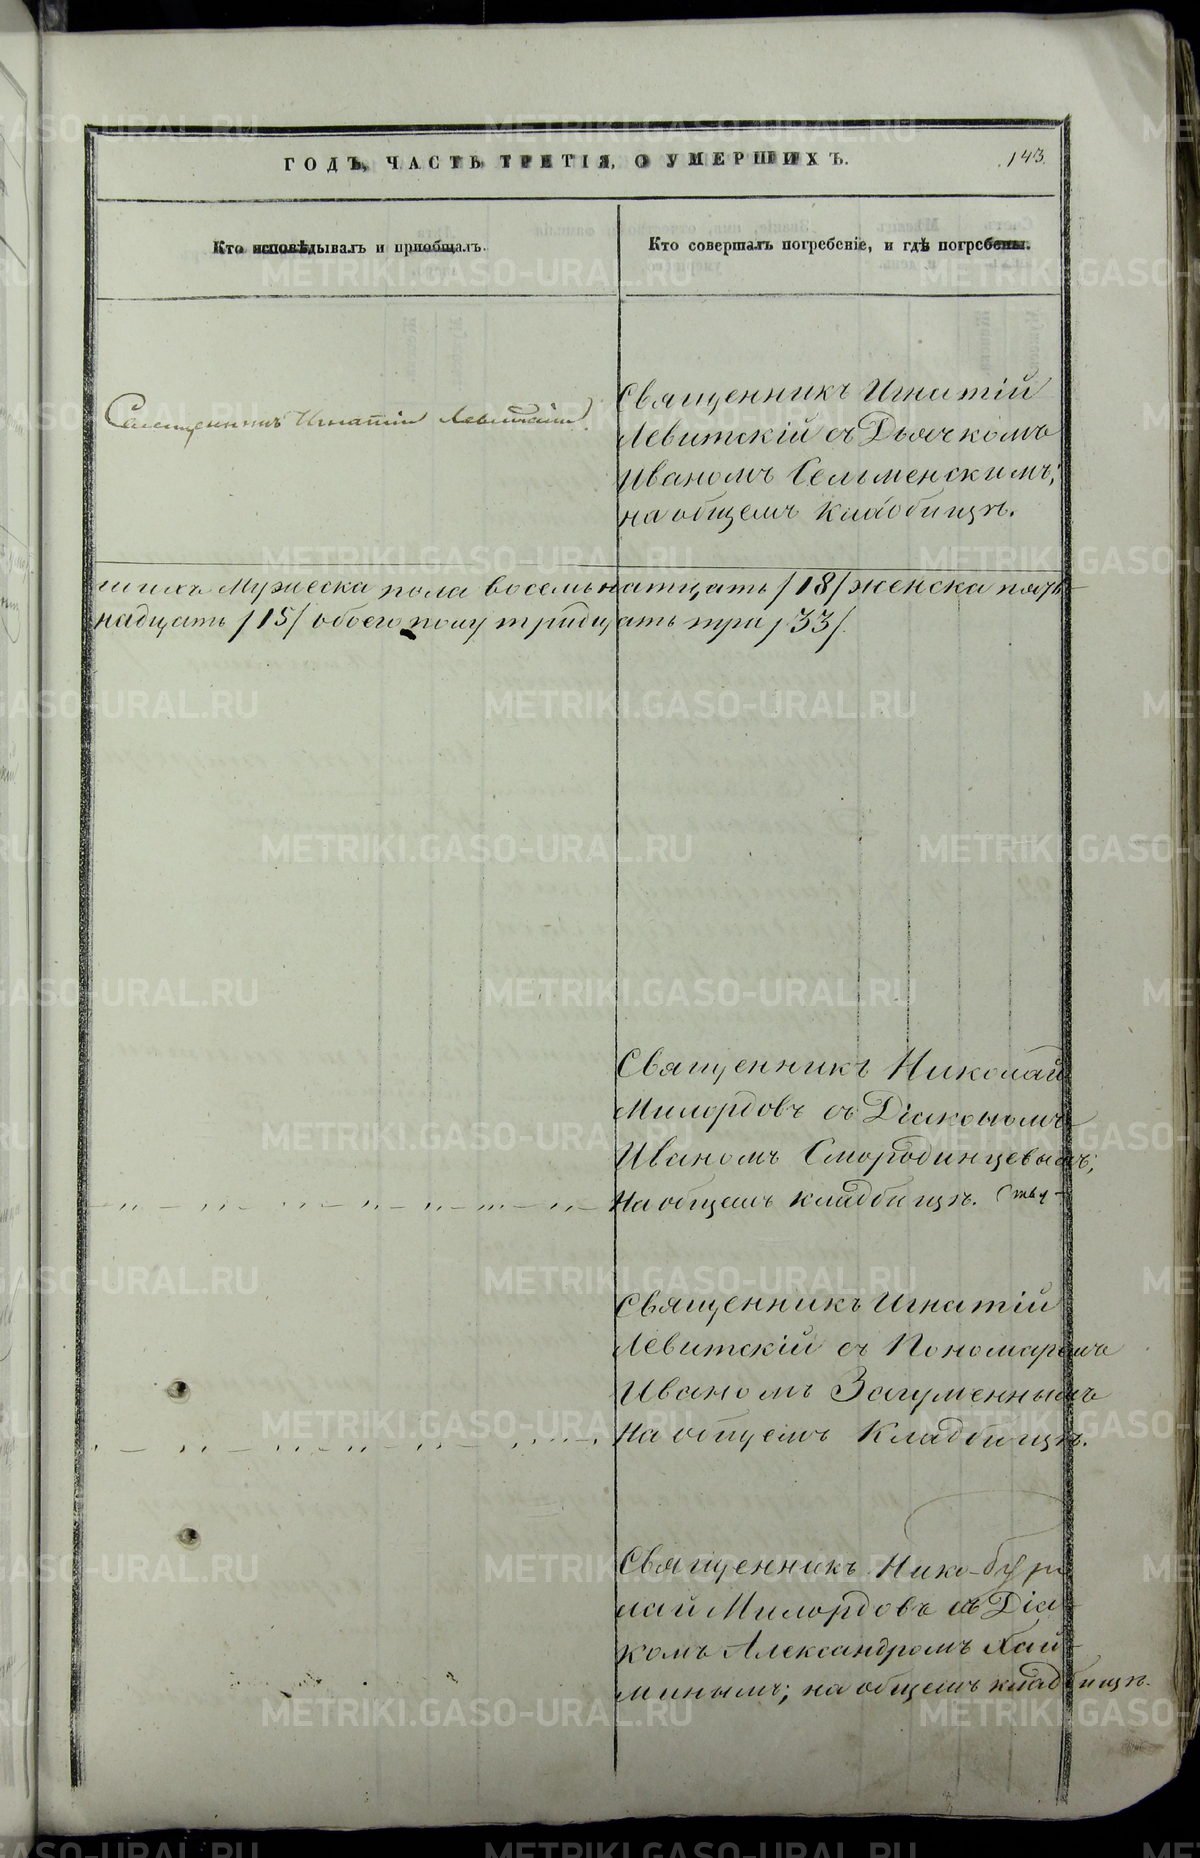 ГОДЪ, ЧАСТЬ ТРЕТІЯ, О УМЕРШИХЪ.
143.
Кто исповѣдывалъ и пріобщалъ.
Кто совершалъ погребеніе, и гдѣ погребены.
Священникъ Игнатій Левитскій.
Священникъ Игнатій
Левитскій съ Дьячкомъ
Иваномъ Сельменскимъ;
на общемъ кладбищѣ.
шихъ Мужеска пола восемьнатцать /18/ женска пять-
надцать /15/ обоего полу тридцать три /33/.
Священникъ Николай
Милордовъ съ Діакономъ
Иваномъ Смородинцевымъ;
На общемъ кладбищѣ.
Священникъ Игнатій
Левитскій съ Пономаремъ
Иваномъ Загуменнымъ
На общемъ Кладбищѣ.
Священникъ Нико-
лай Милордовъ съ Діа-
комъ Александромъ
минымъ; на общемъ кладбищѣ.
METRIKI.GASO-URAL.RU